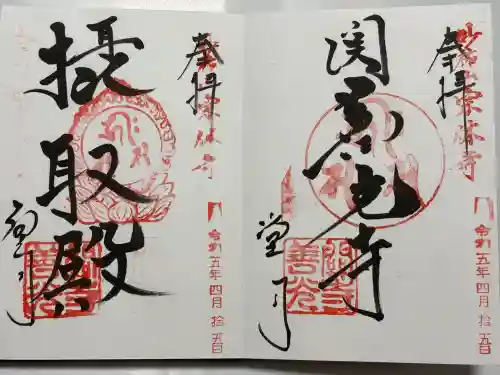 奉拝
関善光寺
堂司
関善光寺
令和五年四月拾五日
奉拝
摂取殿
堂司
関善光寺
令和五年四月拾五日